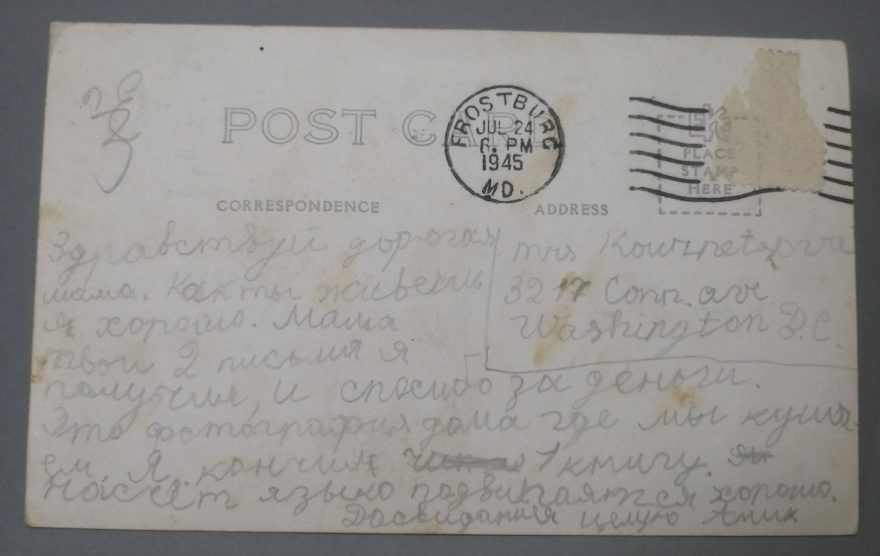 POST CARD
FROSTBURG
JUL 24
6. PM
1945
MD.
PLACE
STAMP
HERE
CORRESPONDENCE
ADDRESS
Здравствуй дорогая
мама. Как ты живешь
я хорошо. Мама
твои 2 письмя я
получил, и спосибо за деньги.
Это фотография дома где мы куша-
ем Я кончил 1 книгу.
насчёт языко подвигаятся хорошо.
Досвидания целую Алик
Mrs Kournetzova
3217 Conn. ave.
Washington D.C.